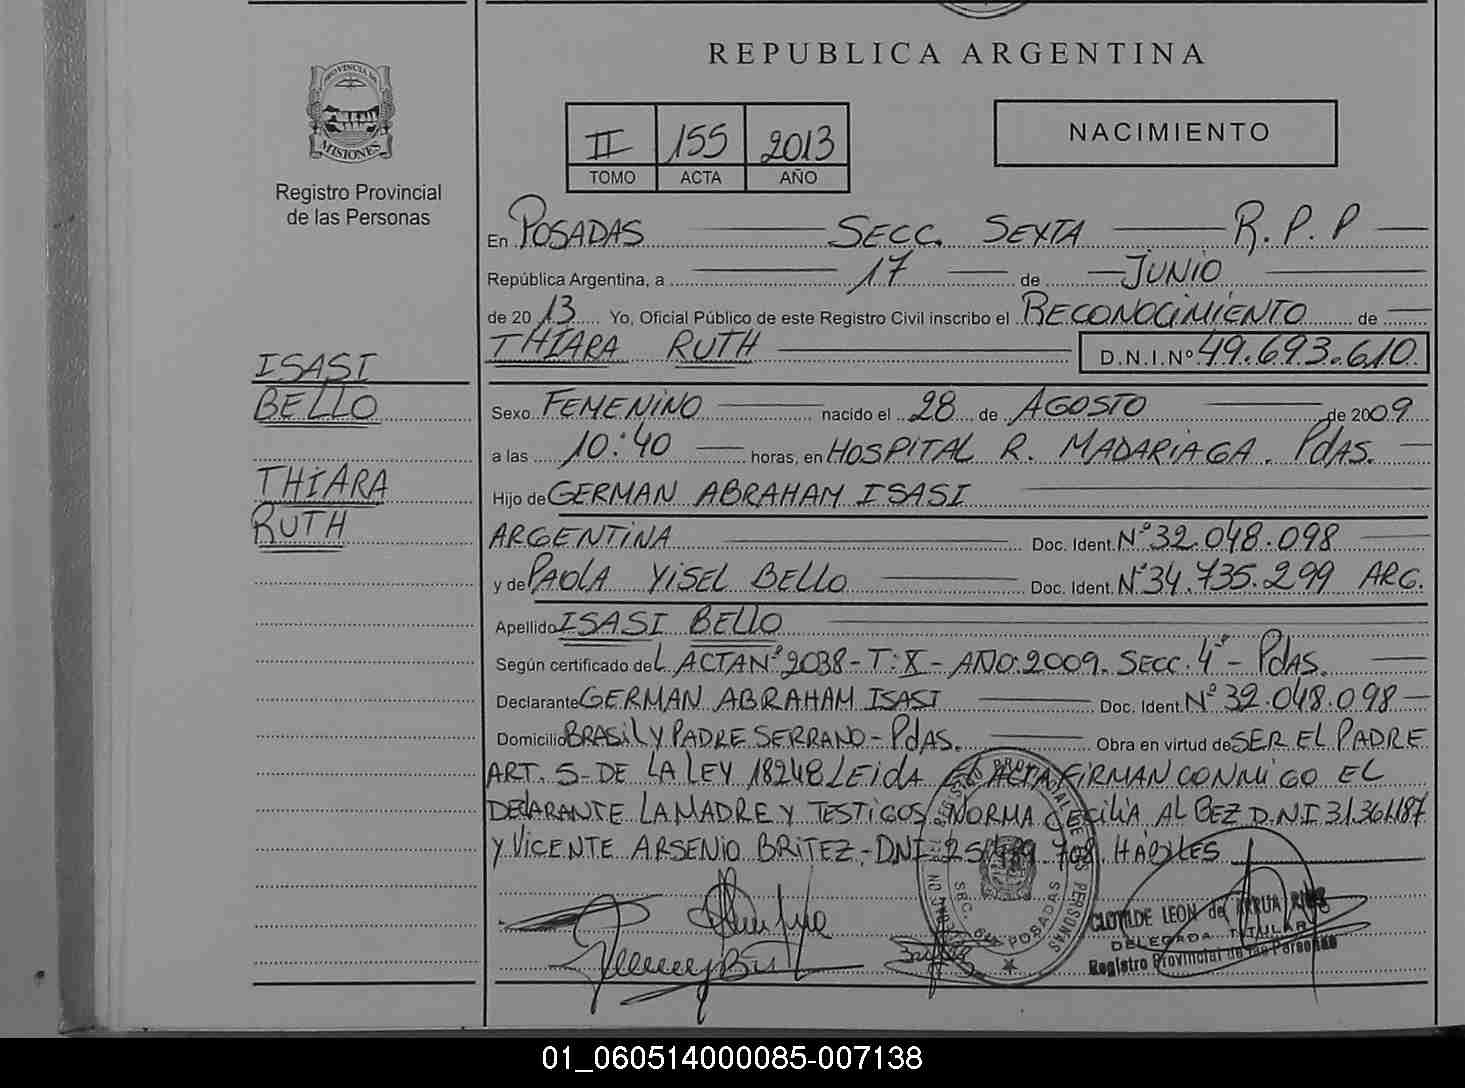 REPUBLICA ARGENTINA
PROVINCIA DE
MISIONES
Registro Provincial
de las Personas
II 155 2013
TOMO ACTA AÑO
NACIMIENTO
En POSADAS SECC. SEXTA R.P.P
República Argentina, a 17 de JUNIO
de 2013 Yo, Oficial Público de este Registro Civil inscribo el RECONOCIMIENTO de
THIARA RUTH D.N.I.Nº 49.693.610
ISASI
BELLO
THIARA
RUTH
Sexo FEMENINO nacido el 28 de AGOSTO de 2009
a las 10:40 horas, en HOSPITAL R. MADARIAGA. PdAS.
Hijo de GERMAN ABRAHAM ISASI
ARGENTINA Doc. Ident. Nº 32.048.098
y de PAOLA YISEL BELLO Doc. Ident. Nº 34.735.299 ARG.
Apellido ISASI BELLO
Según certificado de L ACTA Nº 2038-T:X-AÑO:2009. SECC. 4º-PdAS.
Declarante GERMAN ABRAHAM ISASI Doc. Ident. Nº 32.048.098
Domicilio BRASIL Y PADRE SERRANO-PdAS. Obra en virtud de SER EL PADRE
ART. 5-DE LA LEY 18248 LEIDA EL ACTA FIRMAN CONMIGO EL
DECLARANTE LA MADRE Y TESTIGOS NORMA CECILIA AL BEZ D.N.I 31.361.187
Y VICENTE ARSENIO BRITEZ-DNI 708. HABILES
REGISTRO PROVINCIAL DE LAS PERSONAS
POSADAS
CLOTILDE LEON de
DELEGADA TITULAR
Registro Provincial de las Personas
01_060514000085-007138